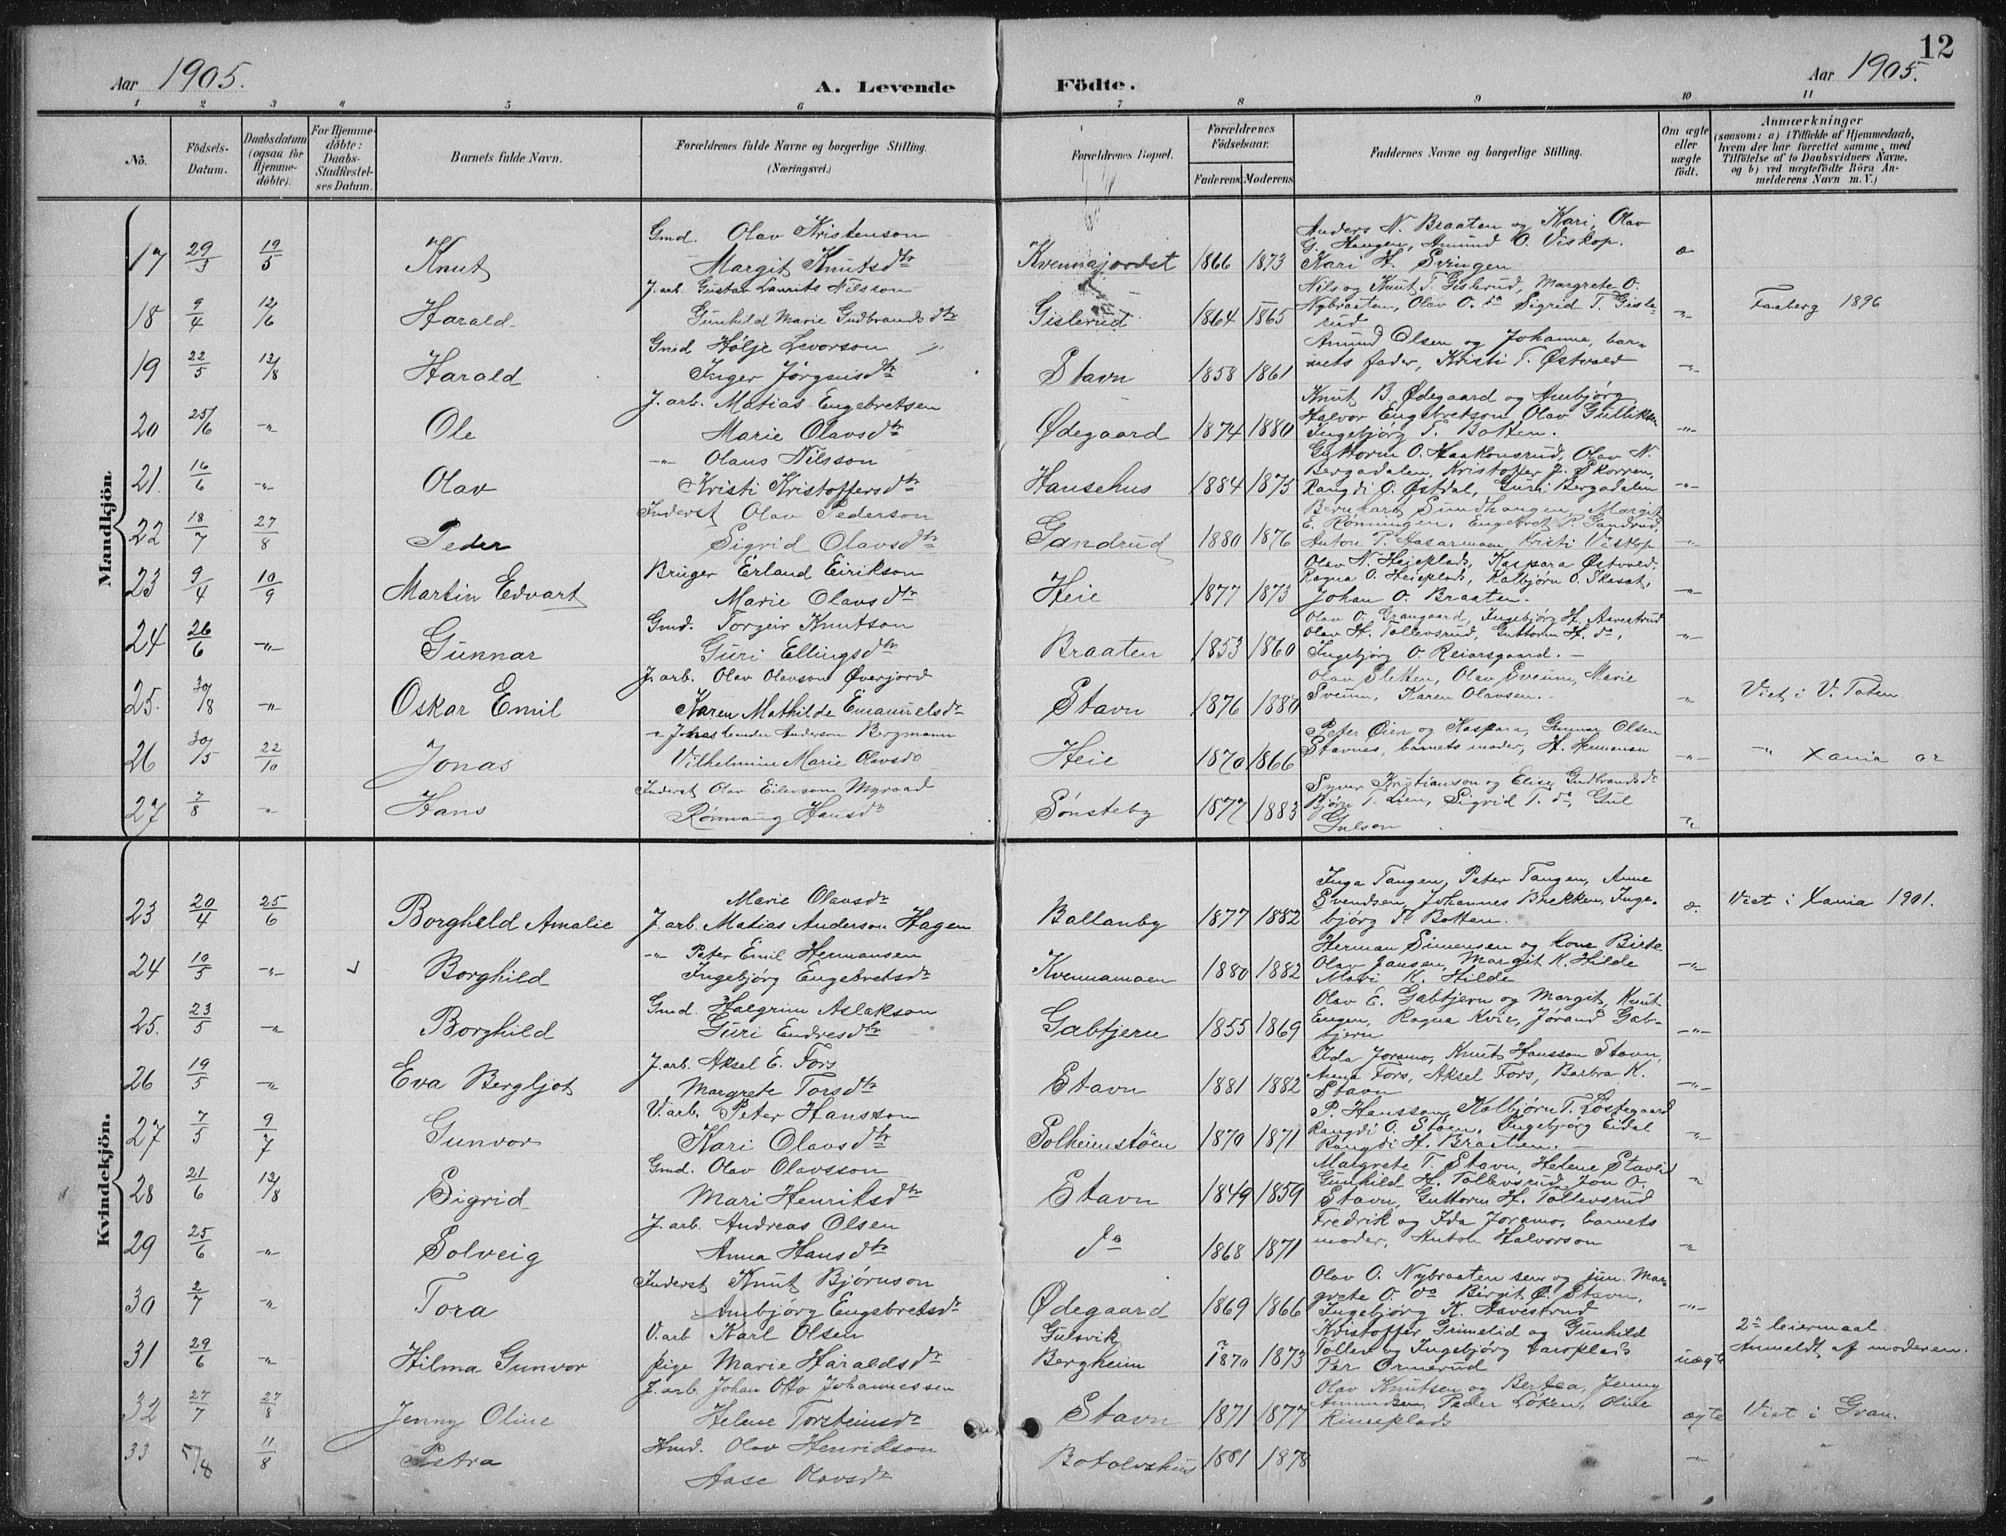 12
Aar 1905. A. Levende Födte. Aar 1905.
1 2 3 4 5 6 7 8 9 10 11
No. Födsels-Datum. Daabsdatum (ogsaa for Hjemme-döbte). For Hjemme-döbte: Daabs-Stadfestel-ses Datum. Barnets fulde Navn. Forældrenes fulde Navne og borgerlige Stilling. (Næringsvei.) Forældrenes Bopæl. Forældrenes Födselsaar. Faderens. Moderens. Faddernes Navne og borgerlige Stilling. Om ægte eller uægte födt. Anmærkninger (saasom: a) i Tilfælde af Hjemmedaab, hvem der har forrettet samme, med Tilföielse af to Daabsvidners Navne, og b) ved uægtefödte Börn Anmelderens Navn m. V.)
Mandkjön.
17 29/3 19/5 Knut Gmd. Olav Kristenson Margit Knutsdtr Kvennajordet 1866 1873 Anders N. Braaten og Kari, Olav G. Haugen, Amund O. Viskop. Kari H. Svingen æ
18 9/4 12/6 Harald J. arb. Gustav Laurits Nilsson Gunhild Marie Gudbrandsdtr Gislerud 1864 1865 Nils og Knut T. Gislerud, Margrete O. Nybraaten, Olav O. do Sigrid T. Gislerud -"- Faaberg 1896
19 22/5 13/8 Harald Gmd Hølje Levorson Inger Jørgensdtr Stavn 1858 1861 Amund Olsen og Johanne, barnets fader, Kristi T. Østvold -"-
20 25/6 -"- Ole J. arb. Matias Engebretsen Marie Olavsdtr Ødegaard 1874 1880 Knut B. Ødegaard og Ambjørg, Halvor Engebretson Olav Gulliksen Ingebjørg T. Botten. -"-
21. 16/6 -"- Olav -"- Olaus Nilsson Kristi Kristoffersdtr Hansehus 1884 1875 Guttorm O. Haakonsrud, Olav N. Bergadalen, Kristoffer J. Skorren, Rangdi O. Østdal, Guri Bergadalen -"-
22 18/7 27/8 Peder Inderst Olav Pederson Sigrid Olavsdtr Gandrud 1880 1876 Bernhart Sundhaugen, Margit E. Rønningen, Engebret P. Gandrud, Anton P. Kristi Viskop -"-
23 9/4 10/9 Martin Edvart Bruger Erland Eirikson Marie Olavsdtr Heie 1877 1873 Olav N. Heieplads, Kaspara Østvold, Ragna O. Heieplads, Kolbjørn O. Johan O. Braaten. -"-
24 26/6 -"- Gunnar Gmd. Torgeir Knutson Guri Ellingsdtr Braaten 1853 1860 Olav O. Grangaard, Ingebjørg H. Aavestrud Olav H. Tollevsrud, Guttorm H. do, Ingebjørg O. Reiarsgaard. -"-
25. 30/8 -"- Oskar Emil J. arb. Olav Olavson Øverjord Karen Mathilde Emanuelsdtr Stavn 1876 1880 Olav Sletten, Olav Sveum, Marie Sveum, Karen Olavsen. -"- Viet i V. Toten
26 30/5 22/10 Jonas -"- Jonas Leander Anderson Bergmann Vilhelmine Marie Olavsdtr Heie 1870 1866 Peter Øien og Kaspara, Gunnar Olsen Stavnes, barnets moder, H. Hemensen -"- -"- Xania
27. 7/8 -"- Hans Inderst Olav Eilevson Myraad Rønnaug Hansdtr Sønsteby 1877 1883 Syver Kristianson og Elise Gudbrandsdtr Bjørn T. Lien, Sigrid T. do, Gul Gulson -"-
Kvindekjön.
23 20/4 25/6 Borghild Amalie Marie Olavsdtr J. arb. Matias Anderson Hagen Ballanby 1877 1882 Inga Tangen, Peter Tangen, Anne Svendsen, Johannes Brekken, Ingebjørg T. Botten. æ. Viet i Xania 1901.
24 10/5 -"- Borghild -"- Peter Emil Hermansen Ingebjørg Engebretsdtr Kvennamoen 1880 1882 Herman Simensen og kone Birte Olav Jansen, Margit K. Hilde Mari K. Hilde -"-
25. 23/5 -"- Borghild Gmd. Halgrim Aslakson Guri Endresdtr Gabtjern 1855 1869 Olav E. Gabtjern og Margit, Knut Engen, Ragna Kvie, Jørand Gabtjern -"-
26 19/5 -"- Eva Bergljot J. arb. Aksel E. Fors Margrete Torsdtr Stavn 1881 1882 Ida Joramo, Knut Hansson Stavn, Anna Fors, Aksel Fors, Barbra K. Stavn -"-
27 7/5 9/7 Gunvor V. arb. Peter Hansson Kari Olavsdtr Solheimstøen 1870 1871 P. Hansson, Kolbjørn T. Rangdi O. Støen, Ingebjørg Eidal Rangdi H. Braaten. -"-
28 21/6 13/8 Sigrid Gmd. Olav Olavsson Mari Henriksdtr Stavn 1849 1859 Margrete T. Stavn, Helene Gunhild H. Tollevsrud, Jon O. Stavn, Guttorm H. Tollevsrud -"-
29 25/6 -"- Solveig J. arb. Andreas Olsen Anna Hansdtr do 1868 1871 Fredrik og Ida Joramo, barnets moder, Anton Halvorson -"-
30 2/7 -"- Tora Inderst Knut Bjørnson Ambjørg Engebretsdtr Ødegaard 1869 1866 Olav O. Nybraaten sen og jun. Margrete O. do Birgit O. Stavn, Ingebjørg K. Aavestrud -"-
31 29/6 -"- Hilma Gunvor V. arb Karl Olsen pige Marie Haraldsdtr Gulsvik Bergheim 1870 1873 Kristoffer Grimelid og Gunhild Tollev og Ingebjørg Per Ormerud uægte 2det leiermaal. Anmeldt af moderen.
32 27/7 27/8 Jenny Oline J. arb. Johan Otto Johannessen Helene Torsteinsdtr Stavn 1871 1877 Olav Knutsen og Bertea, Jenny Amundsen, Peder Løken, Oline ægte Viet i Gran.
33 5/8 11/8 Petra Hmd. Olav Henrikson Aase Olavsdtr Botolvshus 1881 1878 -"-